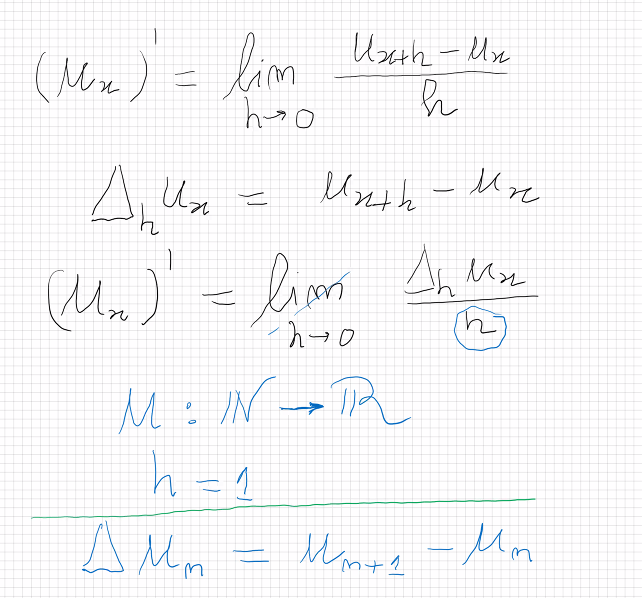 (u_x)' = lim_{h→0} (u_{x+h} − u_x)/h
Δ_h u_x = u_{x+h} − u_x
(u_x)' = lim_{h→0} (Δ_h u_x)/h
u : ℕ → ℝ
h = 1
Δ u_n = u_{n+1} − u_n